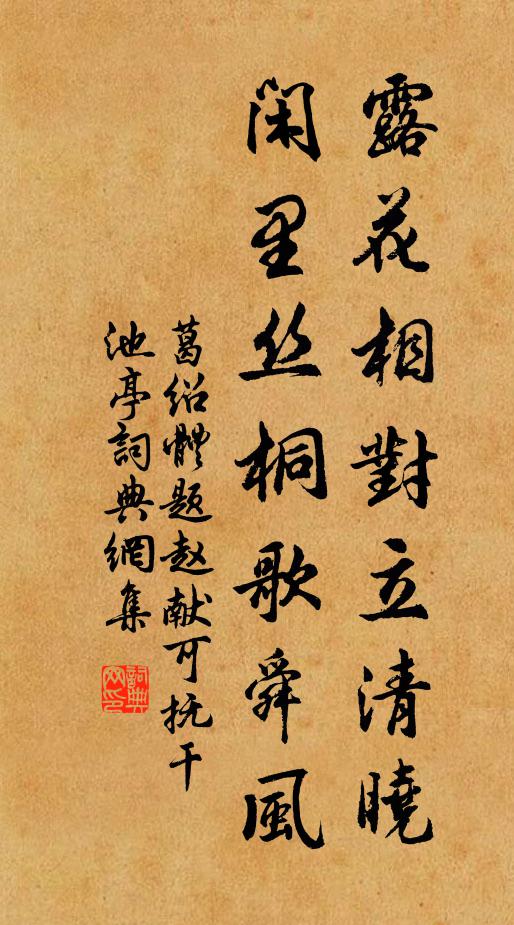 露花相對立清曉
閑里丝桐歌舜風
葛绍體题赵献可抚干
池亭詞典網集
詞典網印